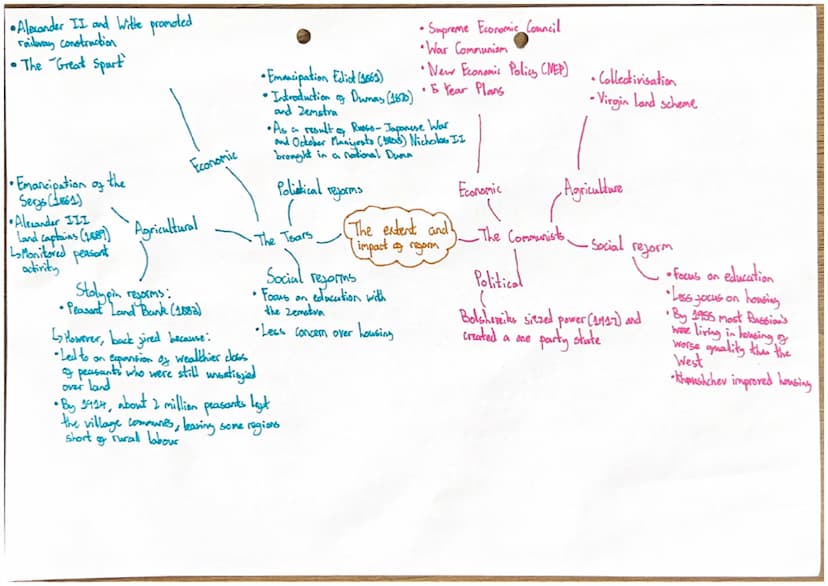 • Alexander II and Witte promoted
railway construction
• The "Great Spurt"
Economic
• Emancipation Edict (1861)
• Introduction of Dumas (1870)
and Zemstra
• As a result of Russo-Japanese War
and October Manifesto (1905) Nicholas II
brought in a national Duma
Political reforms
• Emancipation of the
Serfs (1861)
• Alexander III
land captains (1889)
↳ Monitored peasant
activity
Agricultural
Stolypin reforms:
• Peasant Land Bank (1883)
↳ However, back fired because:
• Led to an expansion of wealthier class
of peasants who were still unsatisfied
over land
• By 1914, about 2 million peasants left
the village communes, leaving some regions
short of rural labour
The Tsars
Social reforms
• Focus on education with
the Zemstra
• Less concern over housing
The extent and
impact of reform
• Supreme Economic Council
• War Communism
• New Economic Policy (NEP)
• 5 Year Plans
Economic
• Collectivisation
• Virgin land scheme
Agriculture
The Communists
Political
Bolsheveiks siezed power (1917) and
created a one party state
Social reform
• Focus on education
• Less focus on housing
• By 1955 most Russian's
were living in housing of
worse quality than the
West
• Khrushchev improved housing